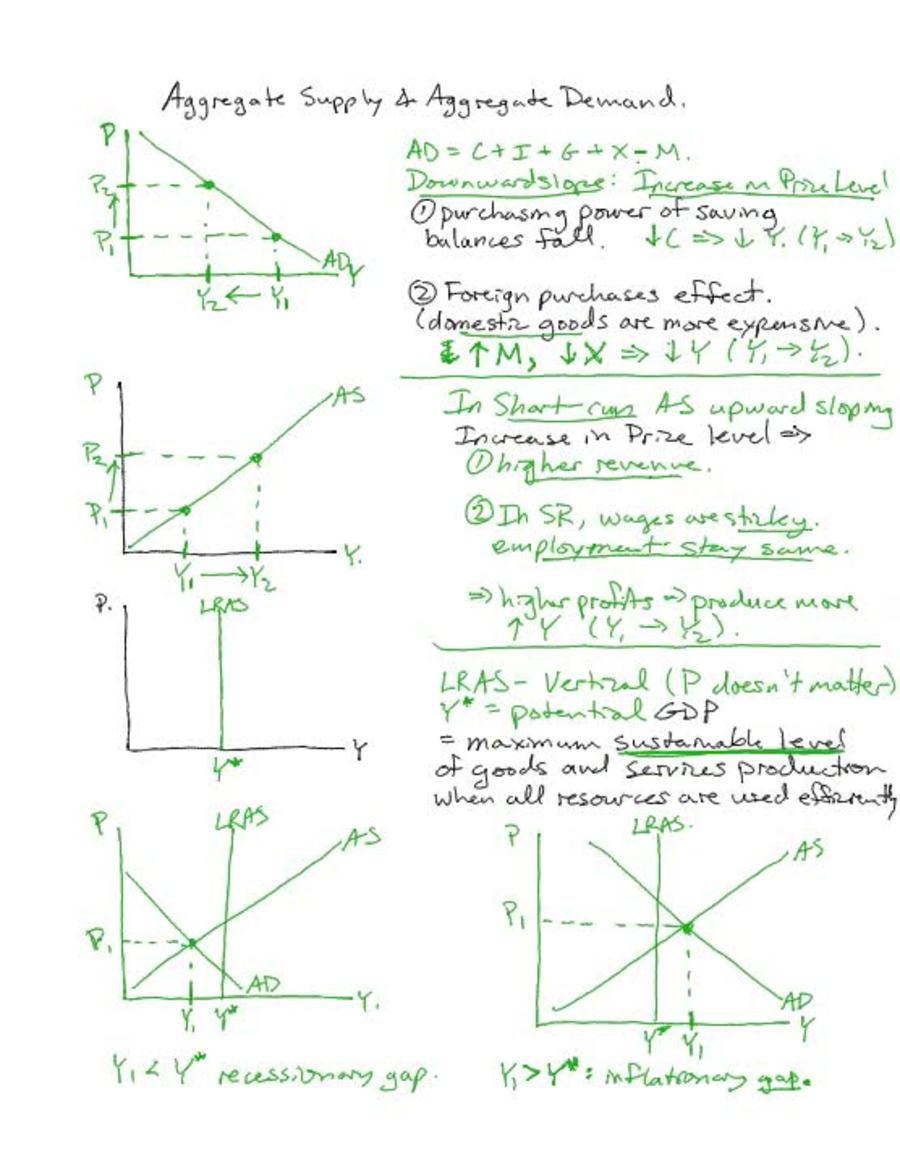 Aggregate Supply & Aggregate Demand.
P
P2
P1
AD
Y
Y2 ← Y1
AD = C + I + G + X - M.
Downward slope: Increase in Prize Level
① purchasing power of saving
balances fall. ↓C => ↓ Y. (Y1 → Y2)
② Foreign purchases effect.
(domestic goods are more expensive).
↑ M, ↓X => ↓Y (Y1 → Y2).
P
AS
P2
P1
Y.
Y1 → Y2
In Short run AS upward sloping
Increase in Prize level =>
① higher revenue.
② In SR, wages are sticky.
employment stay same.
=> higher profits => produce more
↑ Y (Y1 → Y2).
P.
LRAS
Y
Y*
LRAS - Vertical (P doesn't matter)
Y* = potential GDP
= maximum sustainable level
of goods and services production
when all resources are used efficiently
P
LRAS
AS
P1
AD
Y.
Y1 Y*
Y1 < Y* recessionary gap.
P
LRAS.
AS
P1
AD
Y
Y* Y1
Y1 > Y* : inflationary gap.